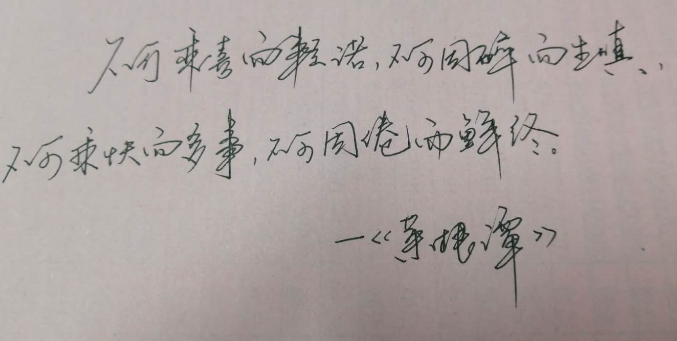 不可乘喜而轻诺,不可因醉而生嗔、
不可乘快而多事,不可因倦而鲜终。
—《菜根谭》